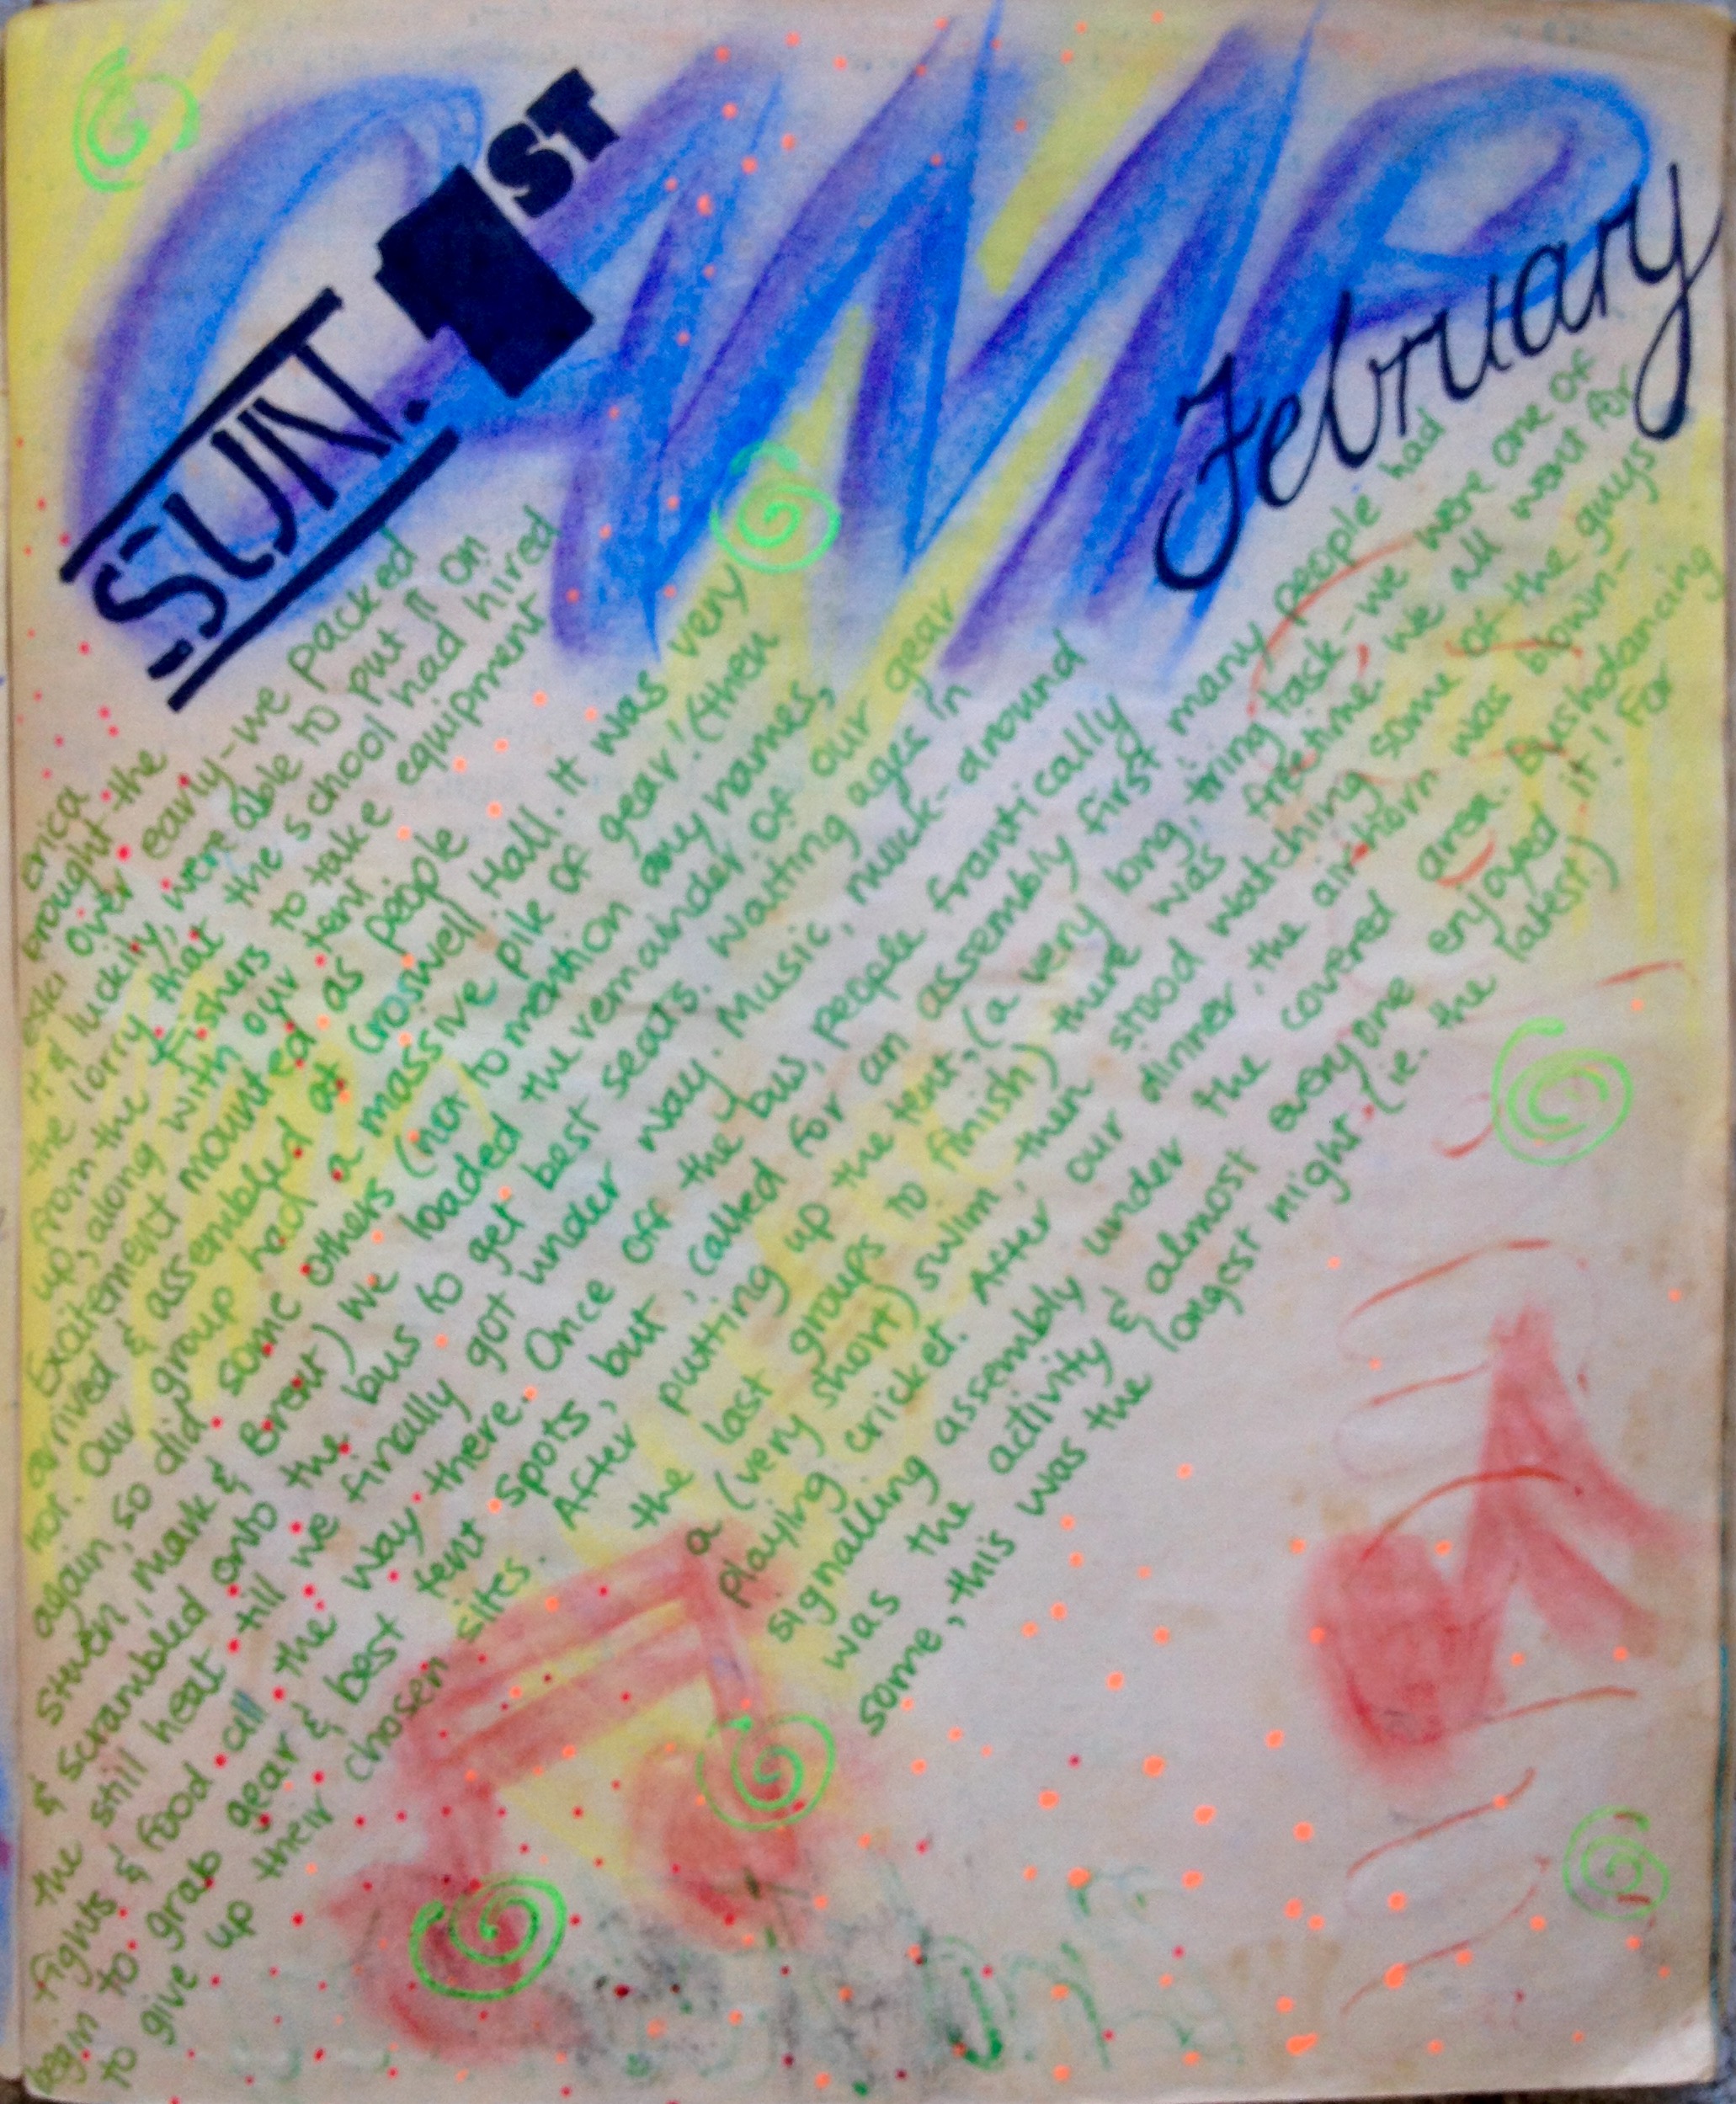 CAMP
SUN. 1ST
February
Erica
brought the
eski over early-we packed
it & luckily, were able to put it on
the lorry that the school had hired
from the Fishers to take equipment
up, along with our tent.
Excitement mounted as people
arrived & assembled at Croswell Hall. It was very
hot. Our group had a massive pile of gear! (then
again, so did some others (not to mention any names,
Steven, Mark & Brent) We loaded the remainder of our gear
& scrambled onto the bus to get best seats. Waiting ages in
the still heat till we finally got under way. Music, muck-around
fights & food all the way there. Once off the bus, people frantically
begin to grab gear & best tent spots, but, called for an assembly first many people had
to give up their chosen sites. After putting up the tent, (a very long, tiring task-we were one of
the last groups to finish) there was freetime. We all went for
a (very short) swim, then stood watching some of the guys
playing cricket. After our dinner, the airhorn was blown-
signalling assembly under the covered area. Bushdancing
was the activity & almost everyone enjoyed it! For
some, this was the longest night (ie. the latest!)